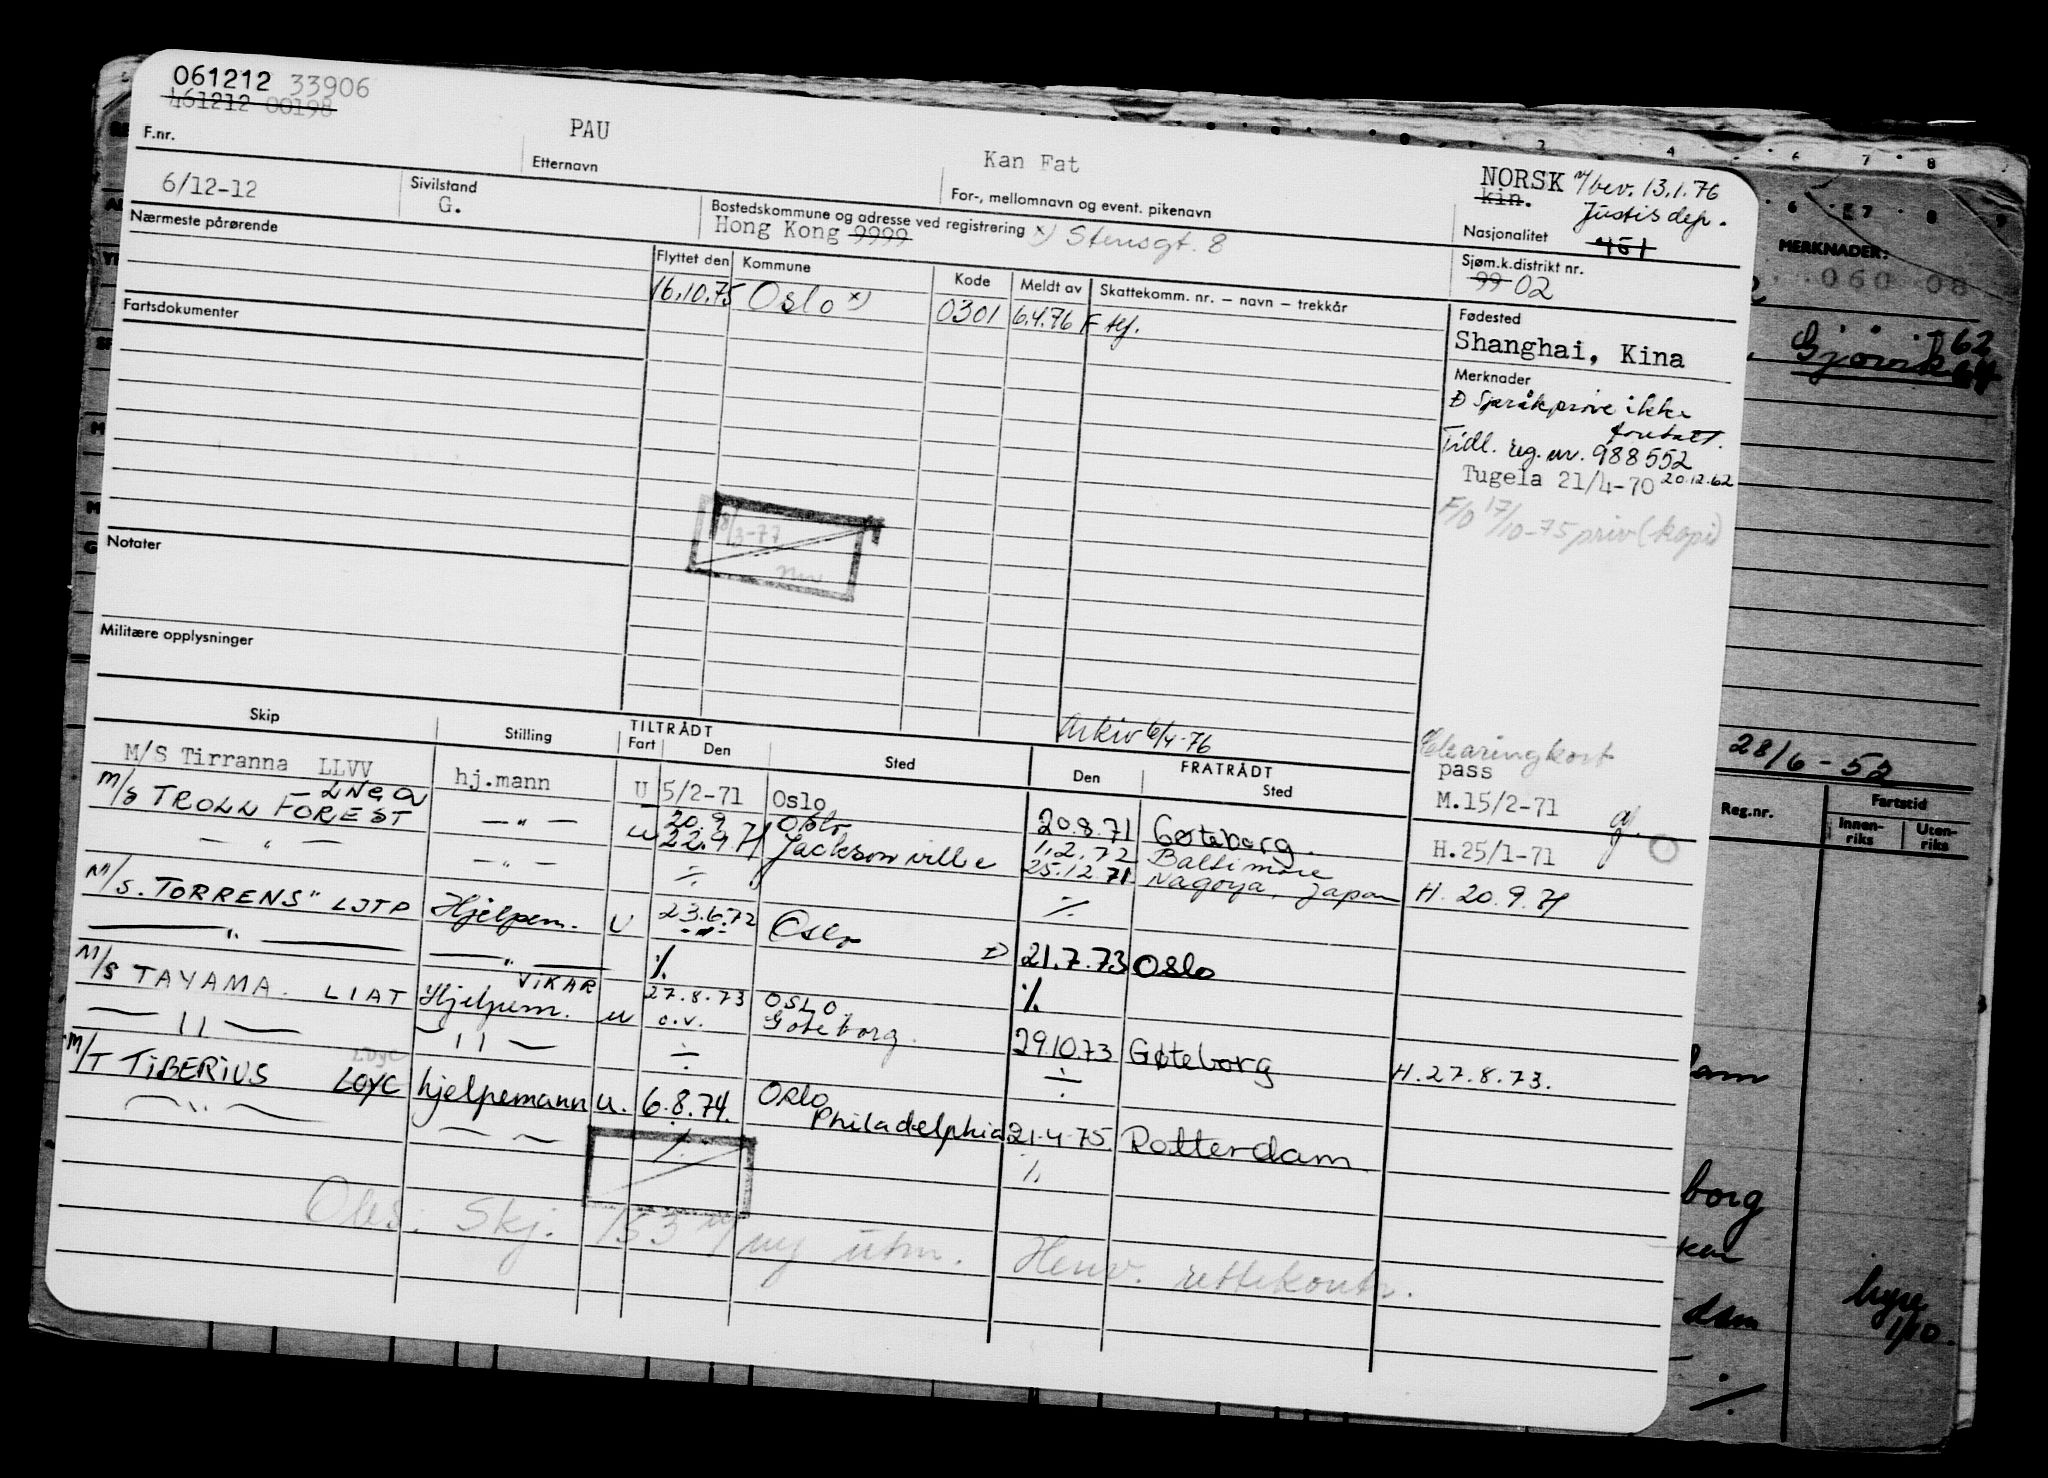 061212 33906
461212 00198
F.nr.
PAU
Etternavn
Kan Fat
For-, mellomnavn og event. pikenavn
NORSK
kin.
13.1.76
Justisdep.
Nasjonalitet
6/12-12
Sivilstand
G.
Bostedskommune og adresse ved registrering x)
Hong Kong 9999
Stensgt. 8
Sjøm.k.distrikt nr.
99 02
Nærmeste pårørende
Flyttet den
Kommune
Kode
Meldt av
Skattekomm. nr. – navn – trekkår
16.10.75 Oslo x) 0301 6.4.76
Fødested
Shanghai, Kina
Fartsdokumenter
Merknader
Språkprøve ikke
Tidl. reg. nr. 988552
20.12.62
Tugela 21/4-70
17/10-75 priv (kopi)
Notater
Militære opplysninger
Arkiv 6/4-76
Clearingkort
Skip
Stilling
TILTRÅDT
Fart
Den
Sted
FRATRÅDT
Den
Sted
pass
M/S Tirranna LLVV hj.mann U 5/2-71 Oslo 20.8.71 Gøteborg. M.15/2-71
M/S TROLL FOREST 20.9 Oslo 1.2.72 Baltimore H.25/1-71
— " — — " — 22.9.71 Jacksonville 25.12.71 Nagoya, Japan H. 20.9.71
M/S. TORRENS" LJTP Hjelpem. U 23.6.72 Oslo 21.7.73 Oslo
— " — — " —
M/S TAYAMA. LIAT Hjelpem. VIKAR u 27.8.73 OSLO
o.v. Gøteborg. 29.10.73 Gøteborg H.27.8.73.
M/T TIBERIUS LDYC hjelpemann u. 6.8.74. Oslo
Philadelphia 21.4.75 Rotterdam.
Obs. Skj. 153 ny utm. Henv. rettekontr.
MERKNADER:
060 08
Gjøvik
62
28/6-52
Reg.nr.
Fartstid
Innen-
riks
Uten-
riks
dam
borg
dam
hyre
1/10.